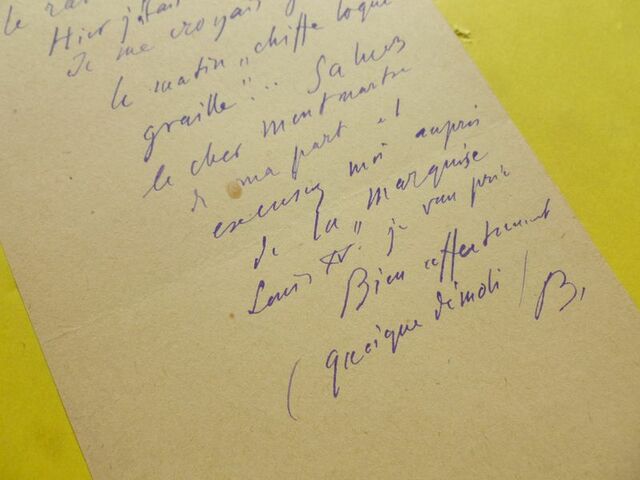 le
Hier j'étais
Je me croyais
le matin "chiffe loque
graille"... Saluez
le cher Montmartre
de ma part et
excusez moi auprès
de la "Marquise
Louis XV. je vous prie
Bien affectueusement
(quoique démoli) B.